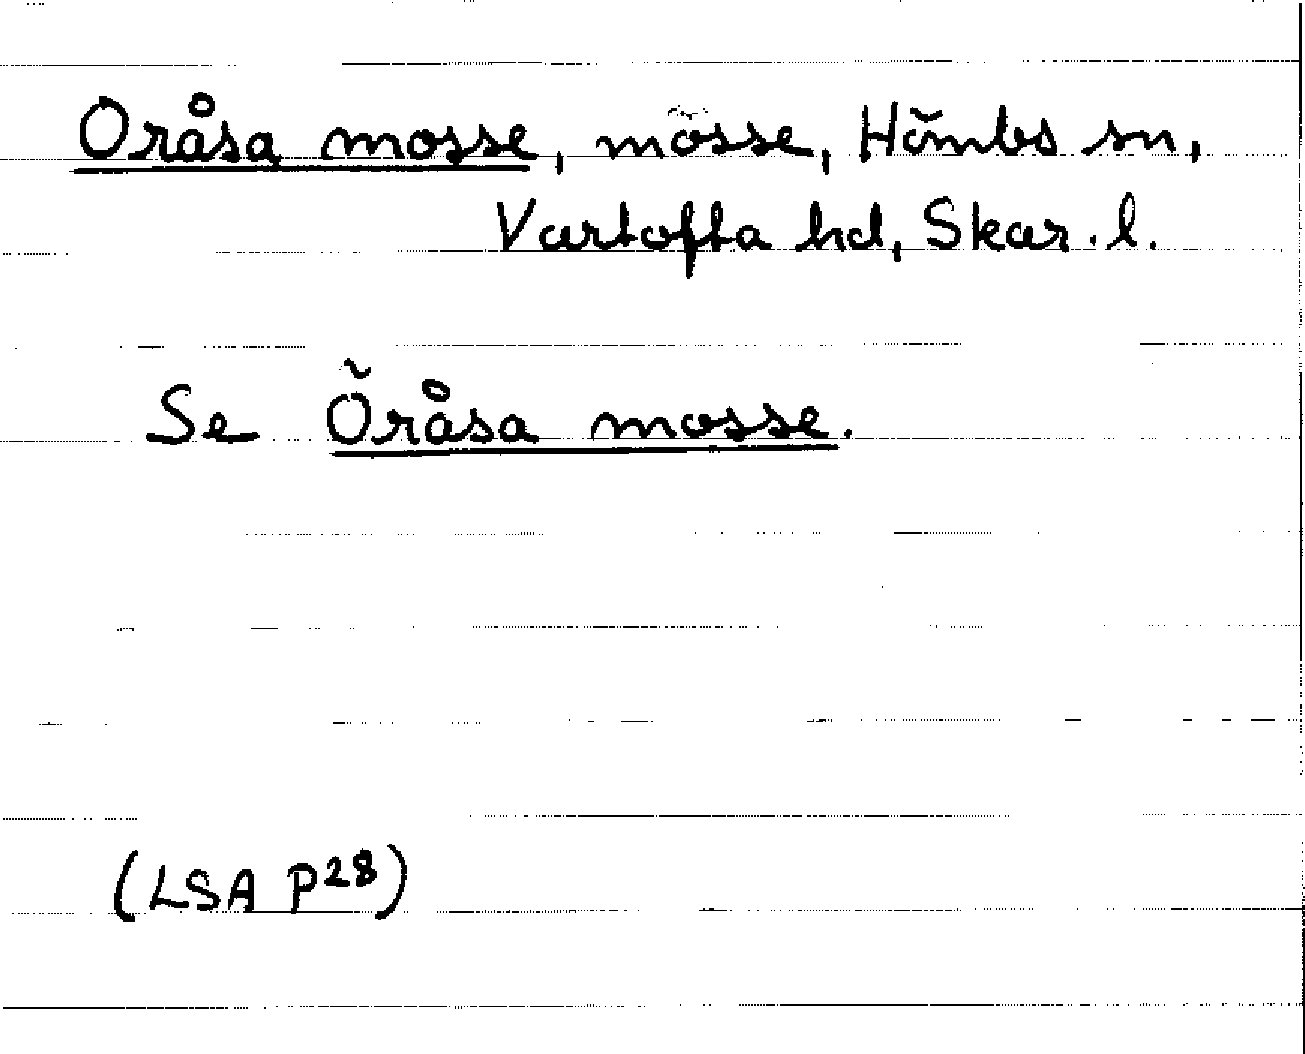 Oråsa mosse, mosse, Hömbs sn,
Vartofta hd, Skar. l.
Se Öråsa mosse.
(LSA P28)